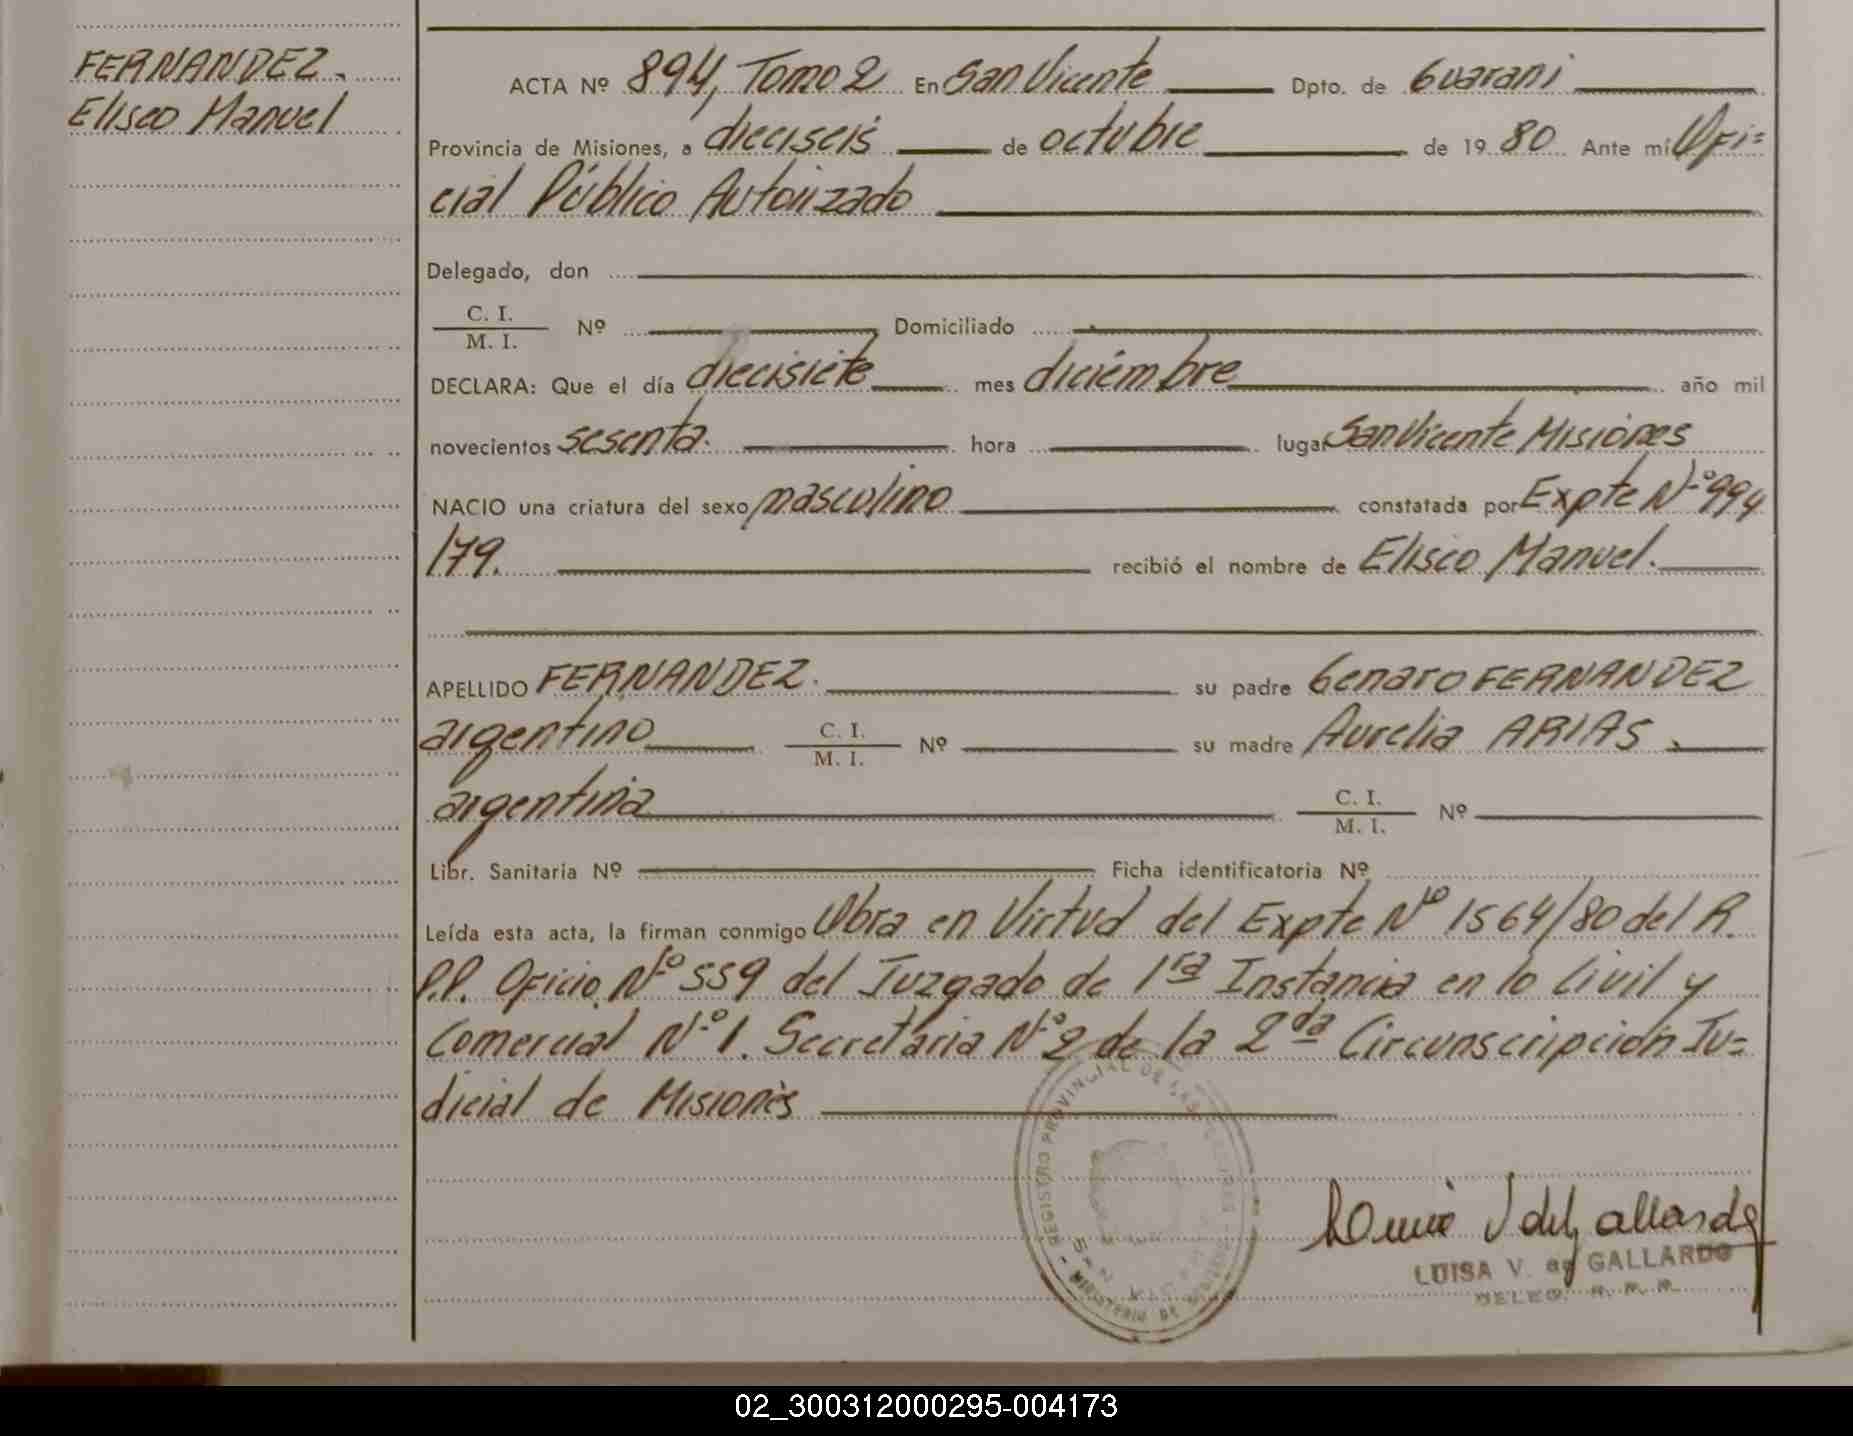 FERNANDEZ.
Eliseo Manuel
ACTA Nº 894, Tomo 2 En San Vicente Dpto. de Guarani
Provincia de Misiones, a dieciseis de octubre de 1980 Ante mi Ofi=
cial Público Autorizado
Delegado, don
C. I.
M. I. Nº Domiciliado
DECLARA: Que el día diecisiete mes diciembre año mil
novecientos sesenta. hora lugar San Vicente Misiones
NACIO una criatura del sexo masculino constatada por Expte Nº 994
/79. recibió el nombre de Eliseo Manuel.
APELLIDO FERNANDEZ. su padre Genaro FERNANDEZ
argentino C. I.
M. I. Nº su madre Aurelia ARIAS.
argentina C. I.
M. I. Nº
Libr. Sanitaria Nº Ficha identificatoria Nº
Leída esta acta, la firman conmigo Obra en Virtud del Expte Nº 1564/80 del R.
P.P. Oficio Nº 559 del Juzgado de 1ra Instancia en lo Civil y
Comercial Nº 1. Secretaria Nº 2 de la 2da Circunscripción Ju=
dicial de Misiones
REGISTRO PROVINCIAL DE LAS PERSONAS
MINISTERIO DE GOBIERNO
LUISA V. de GALLARDO
DELEG. R. P. P.
02_300312000295-004173